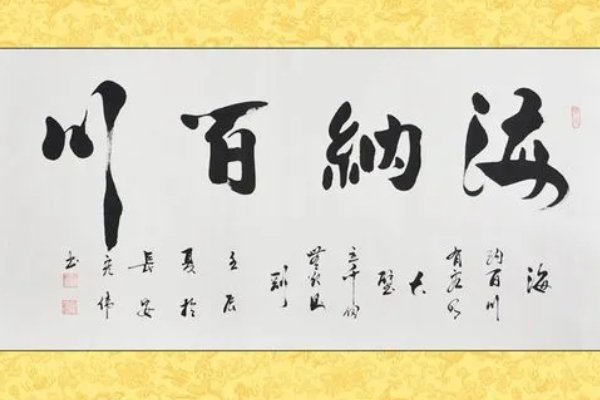 海納百川
海
納百川
有容乃
大
壁
立千仞
無欲則
剛
壬辰
夏於
長安
偉
書